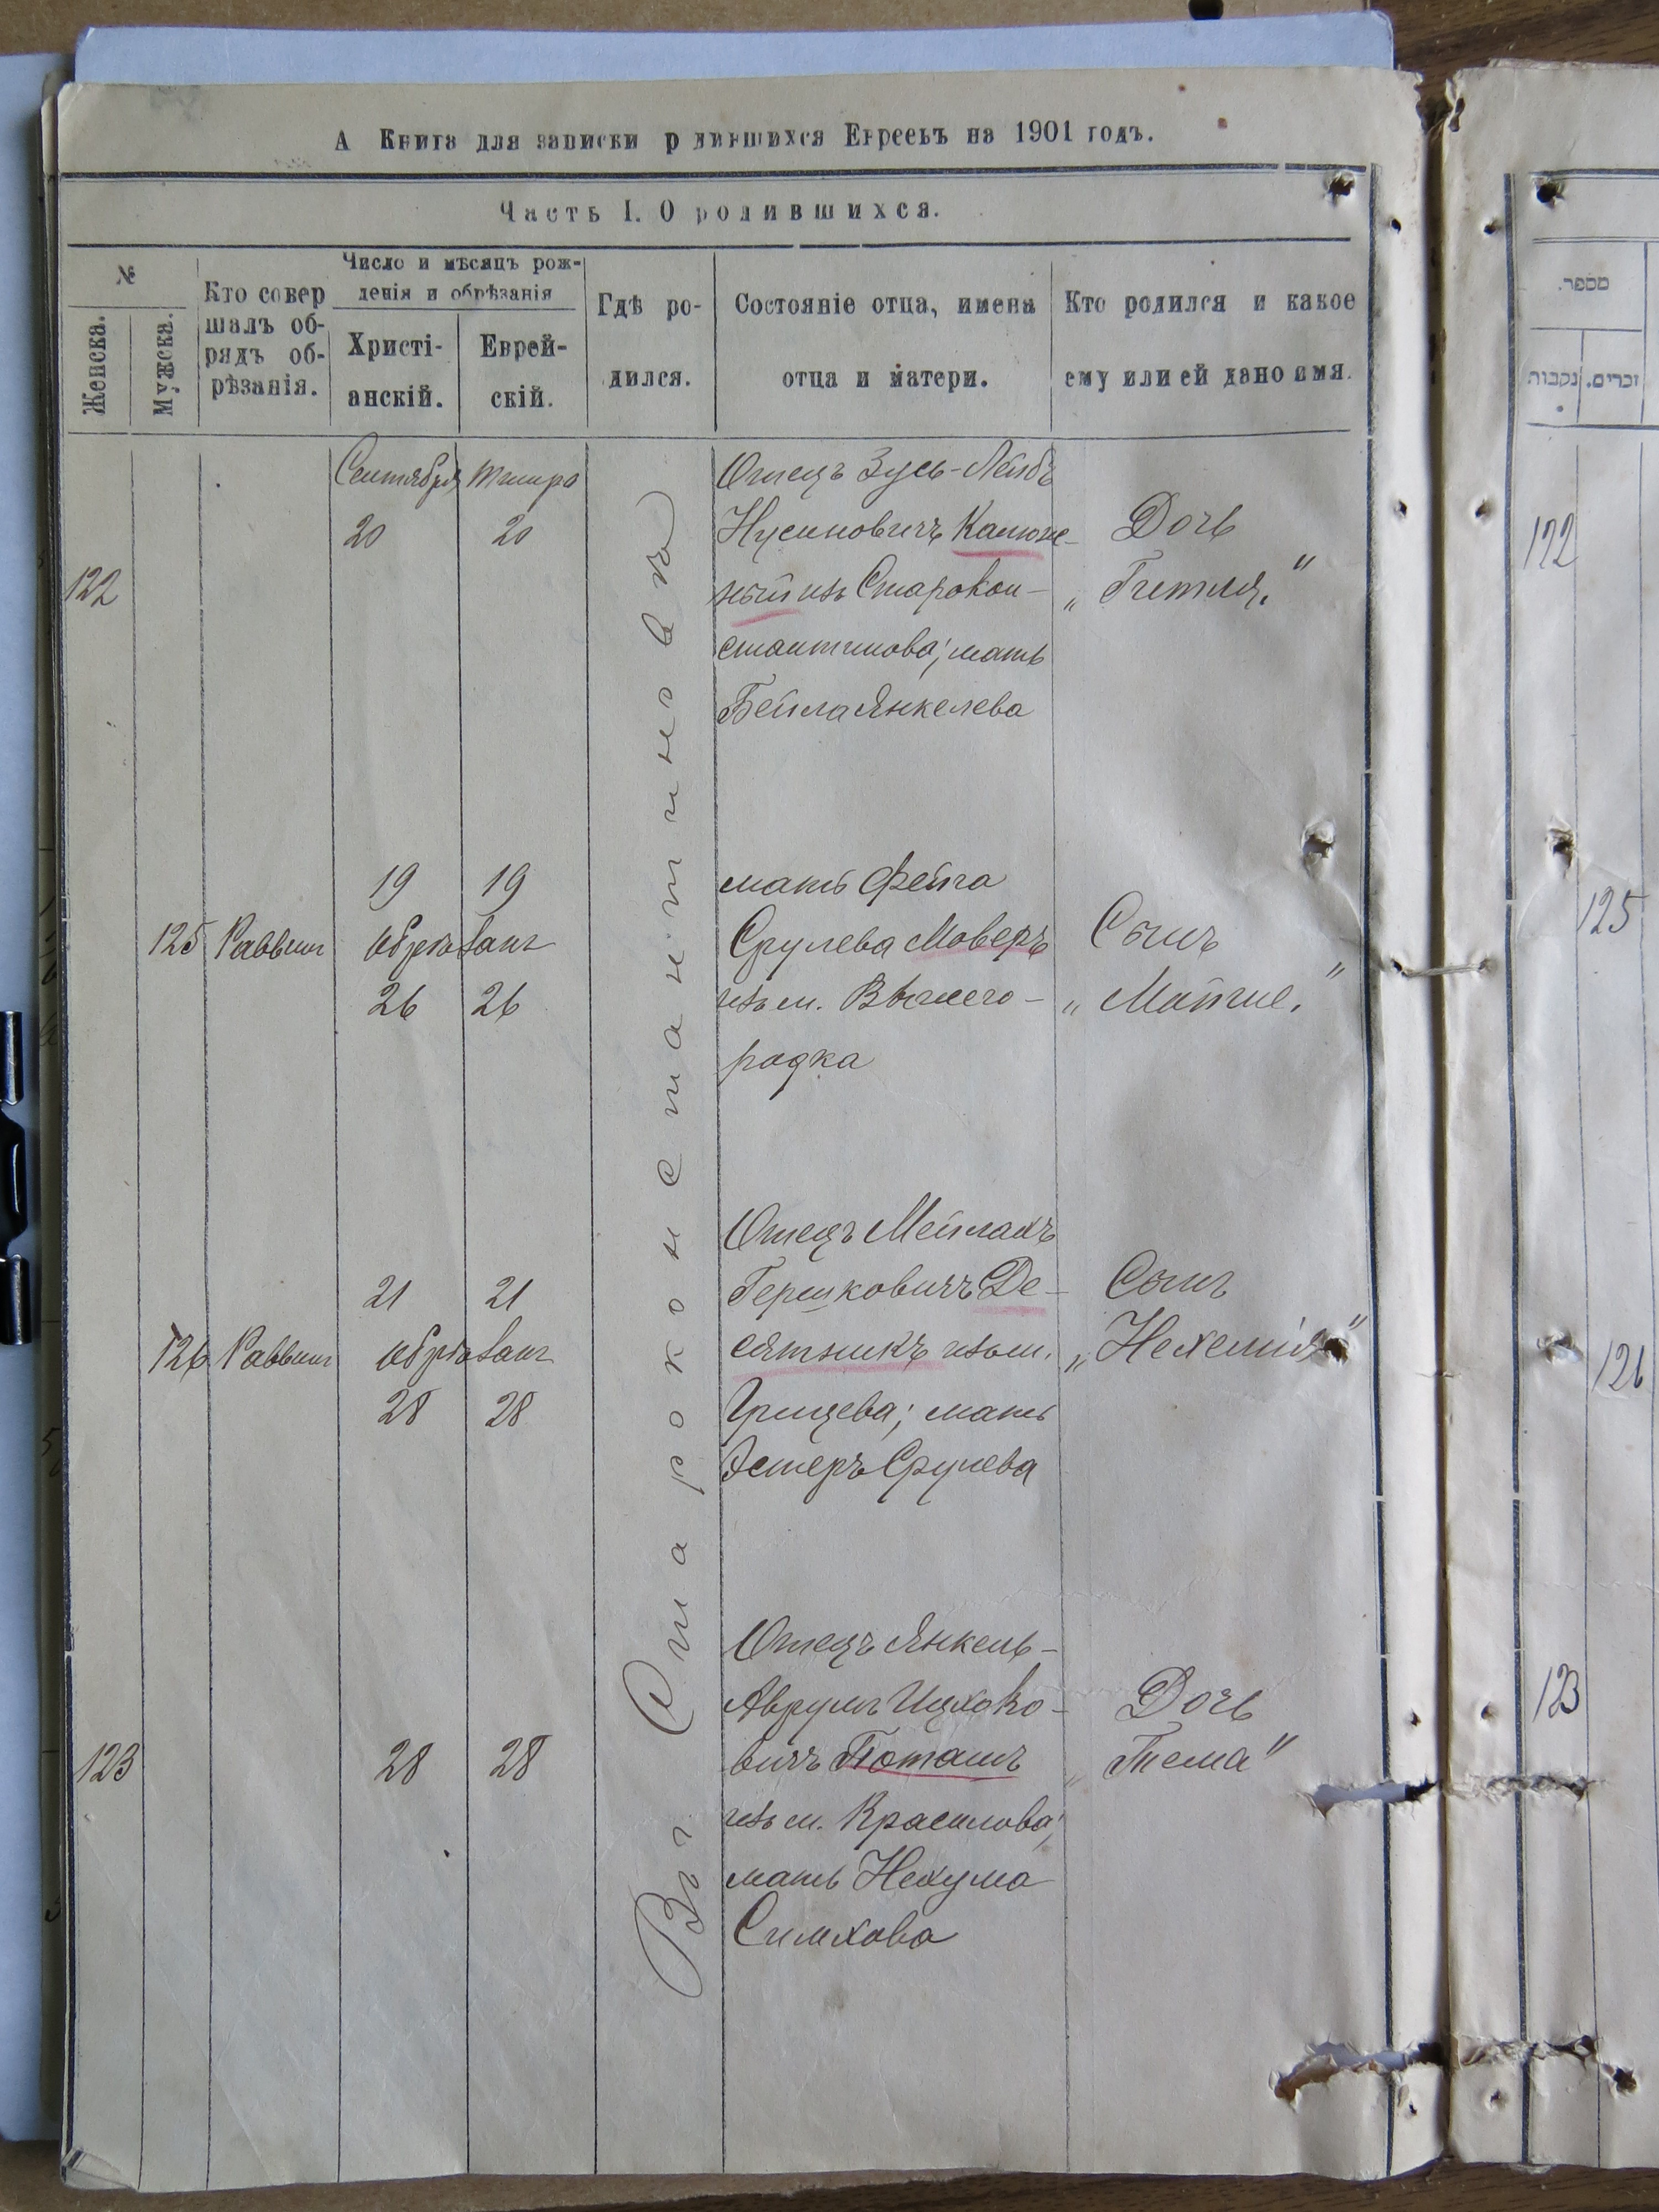 А Книга для записки родившихся Евреевъ на 1901 годъ.
Часть I. О родившихся.
№
Женска.
Мужска.
Кто совер
шалъ об-
рядъ об-
рѣзанія.
Число и мѣсяцъ рож-
денія и обрѣзанія
Христі-
анскій.
Еврей-
скій.
Гдѣ ро-
дился.
Состояніе отца, имена
отца и матери.
Кто родился и какое
ему или ей дано имя.
Въ Староконстантиновѣ
122
Сентября Тишро
20 20
Отецъ Зусь-Лейбъ
Нусиновичъ Катюж-
ный изъ Старокон-
стантинова; мать
Бейла Янкелева
Дочь
„Гитля."
125 Раввинъ
19 19
обрѣзанъ
26 26
мать Фейга
Срулева Моверъ
изъ м. Вышего-
родка
Сынъ
„Мойше."
126 Раввинъ
21 21
обрѣзанъ
28 28
Отецъ Мейлахъ
Гершковичъ Де-
сятникъ изъ м.
Грицева; мать
Эстеръ Срулева
Сынъ
„Нехемія"
123
28 28
Отецъ Янкель-
Аврумъ Ицхоко-
вичъ Поташъ
изъ м. Красилова;
мать Нехума
Симхова
Дочь
„Тема"
מספר.
זכרים.
נקבות
122
125
126
123